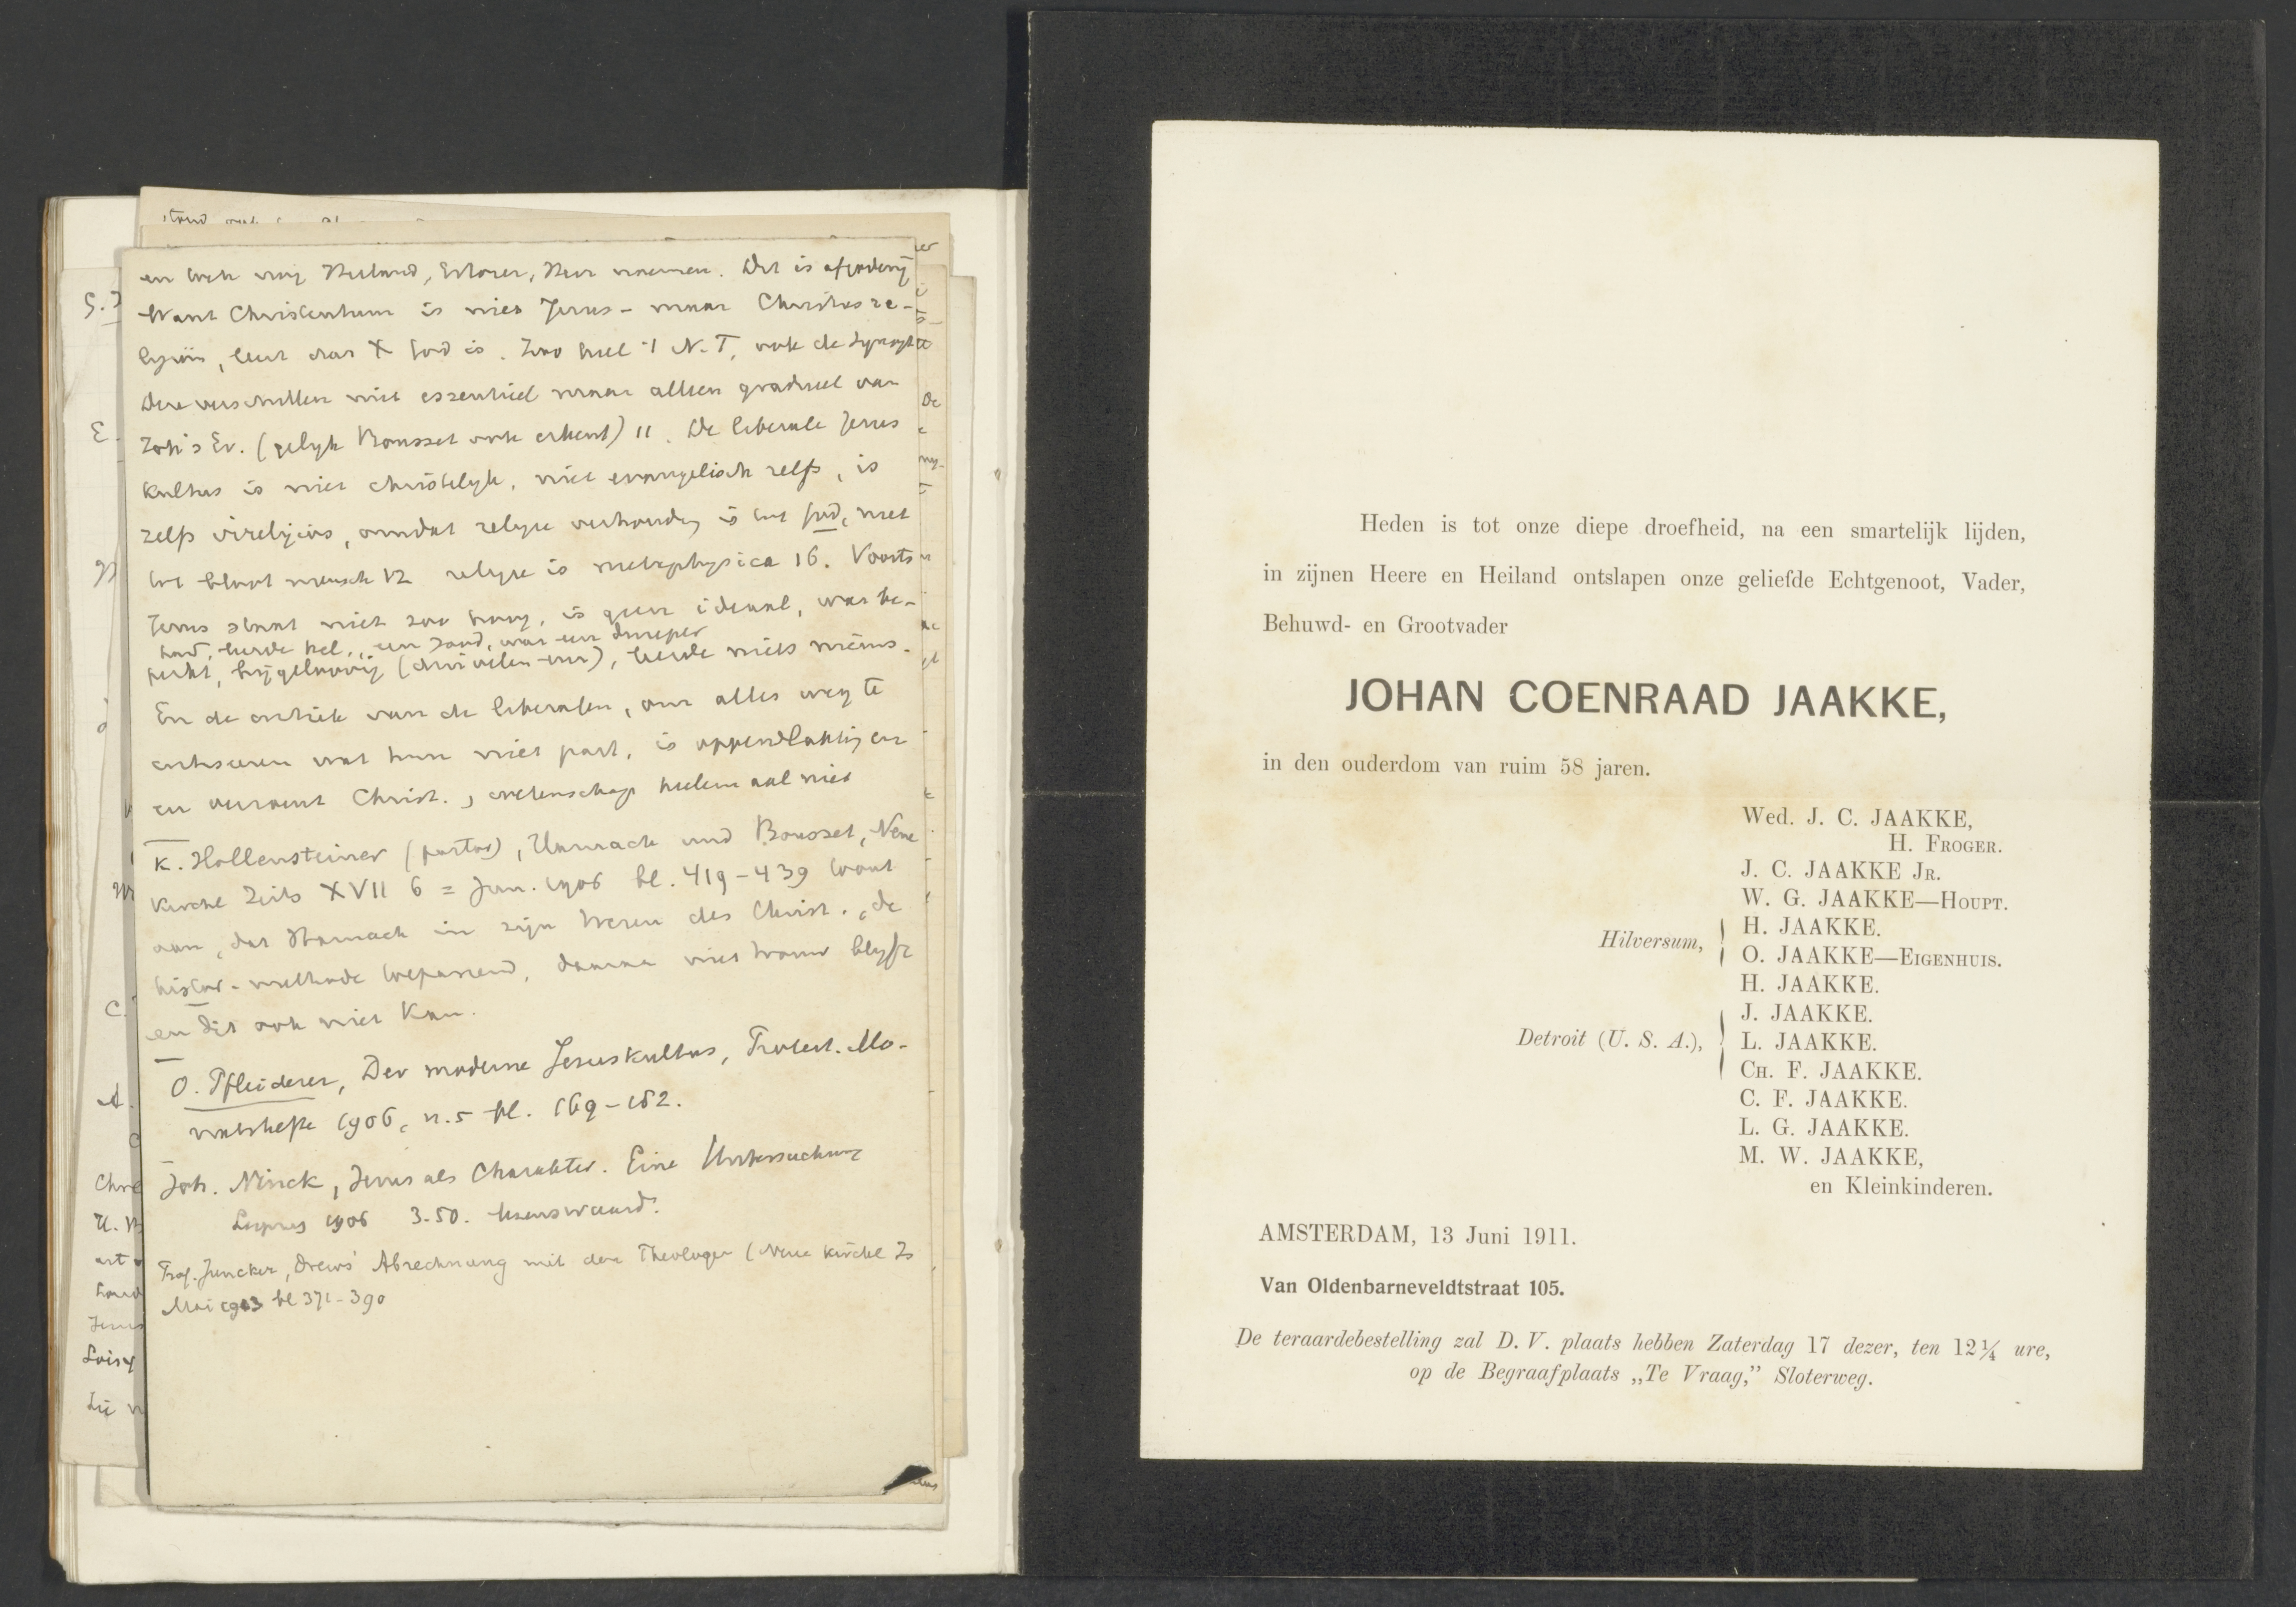 en toch nog Heiland, Erlöser, Heer noemen. Dit is afgoderij
Want Christentum is niet Jezus- maar Christusre-
ligion, leert dat X God is. Zoo heel 't N.T., ook de Synopt
Deze verschillen niet essentieel maar alleen gradueel van
Joh's Ev. (gelijk Bousset ook erkent) 11. De liberale Jezus
kultus is niet christelijk, niet evangelisch zelfs, is
zelfs irreligieus, omdat religie verhouding is tot God, niet
tot bloot mensch 12 religie is metaphysica 16. Voorts
Jezus staat niet zoo hoog, is geen ideaal, was be-
perkt, bijgeloovig (duivelen enz), leerde niets nieuws.
En de critiek van de liberalen, om alles weg te
critiseeren wat hun niet past, is oppervlakkig en
en Christ., wetenschap heelemaal niet
K. Hollensteiner (pastor), Harnack und Bousset, Neue
Kirchl Zeits XVII 6 = Jun. 1906 bl. 419-439 toont
aan, dat Harnack in zijn Wesen des Christ., de
histor. methode toepassend, daaraan niet trouw blijft
en dit ook niet kan.
O. Pfleiderer, Der moderne Jesuskultus, Protest. Mo-
natshefte 1906, n. 5 bl. 169-182.
Joh. Ninck, Jesus als Charakter. Eine Untersuchung
Leipzig 1906 3.50. lezenswaard.
Prof. Juncker, Drews' Abrechnung mit der Theologen (Neue kirchl Zs
Mai 1913 bl 371-390
Heden is tot onze diepe droefheid, na een smartelijk lijden,
in zijnen Heere en Heiland ontslapen onze geliefde Echtgenoot, Vader,
Behuwd- en Grootvader
JOHAN COENRAAD JAAKKE,
in den ouderdom van ruim 58 jaren.
Wed. J. C. JAAKKE,
H. FROGER.
J. C. JAAKKE JR.
W. G. JAAKKE—HOUPT.
Hilversum, H. JAAKKE.
O. JAAKKE—EIGENHUIS.
H. JAAKKE.
J. JAAKKE.
Detroit (U. S. A.), L. JAAKKE.
CH. F. JAAKKE.
C. F. JAAKKE.
L. G. JAAKKE.
M. W. JAAKKE,
en Kleinkinderen.
AMSTERDAM, 13 Juni 1911.
Van Oldenbarneveldtstraat 105.
De teraardebestelling zal D. V. plaats hebben Zaterdag 17 dezer, ten 12¼ ure,
op de Begraafplaats „Te Vraag,” Sloterweg.